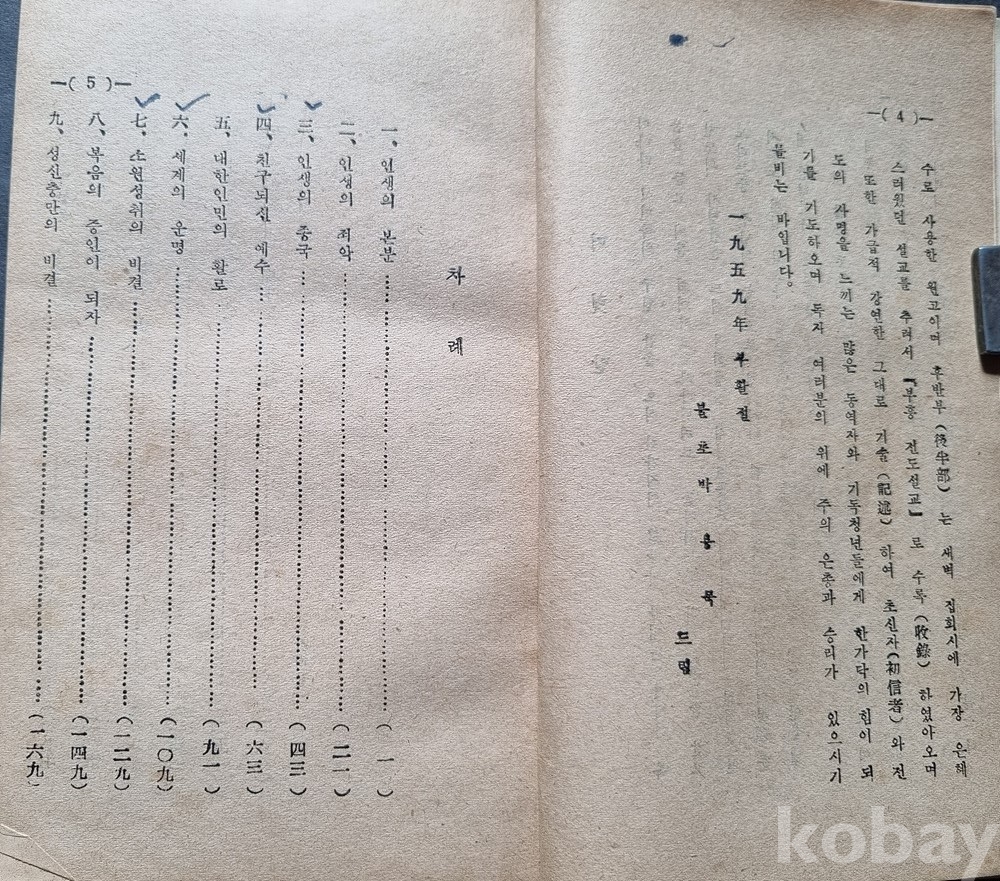 —( 4 )—
수로 사용한 원고이며 후반부(後半部)는 새벽 집회시에 가장 은혜
스러웠던 설교를 추려서 『부흥 전도설교』로 수록(收錄)하였아오며
또한 가급적 강연한 그대로 기술(記述)하여 초신자(初信者)와 전
도의 사명을 느끼는 많은 동역자와 기독청년들에게 한가닥의 힘이 되
기를 기도하오며 독자 여러분의 위에 주의 은총과 승리가 있으시기
를비는 바입니다。
一九五九年 부활절
불로바 용묵 드림
—( 5 )—
차 례
一、인생의 본분 (一)
二、인생의 죄악 (二一)
三、인생의 종국 (四三)
四、친구되신 예수 (六三)
五、대한인민의 활로 (九一)
六、세계의 운명 (一〇九)
七、소원성취의 비결 (一二九)
八、복음의 증인이 되자 (一四九)
九、성신충만의 비결 (一六九)
kobay